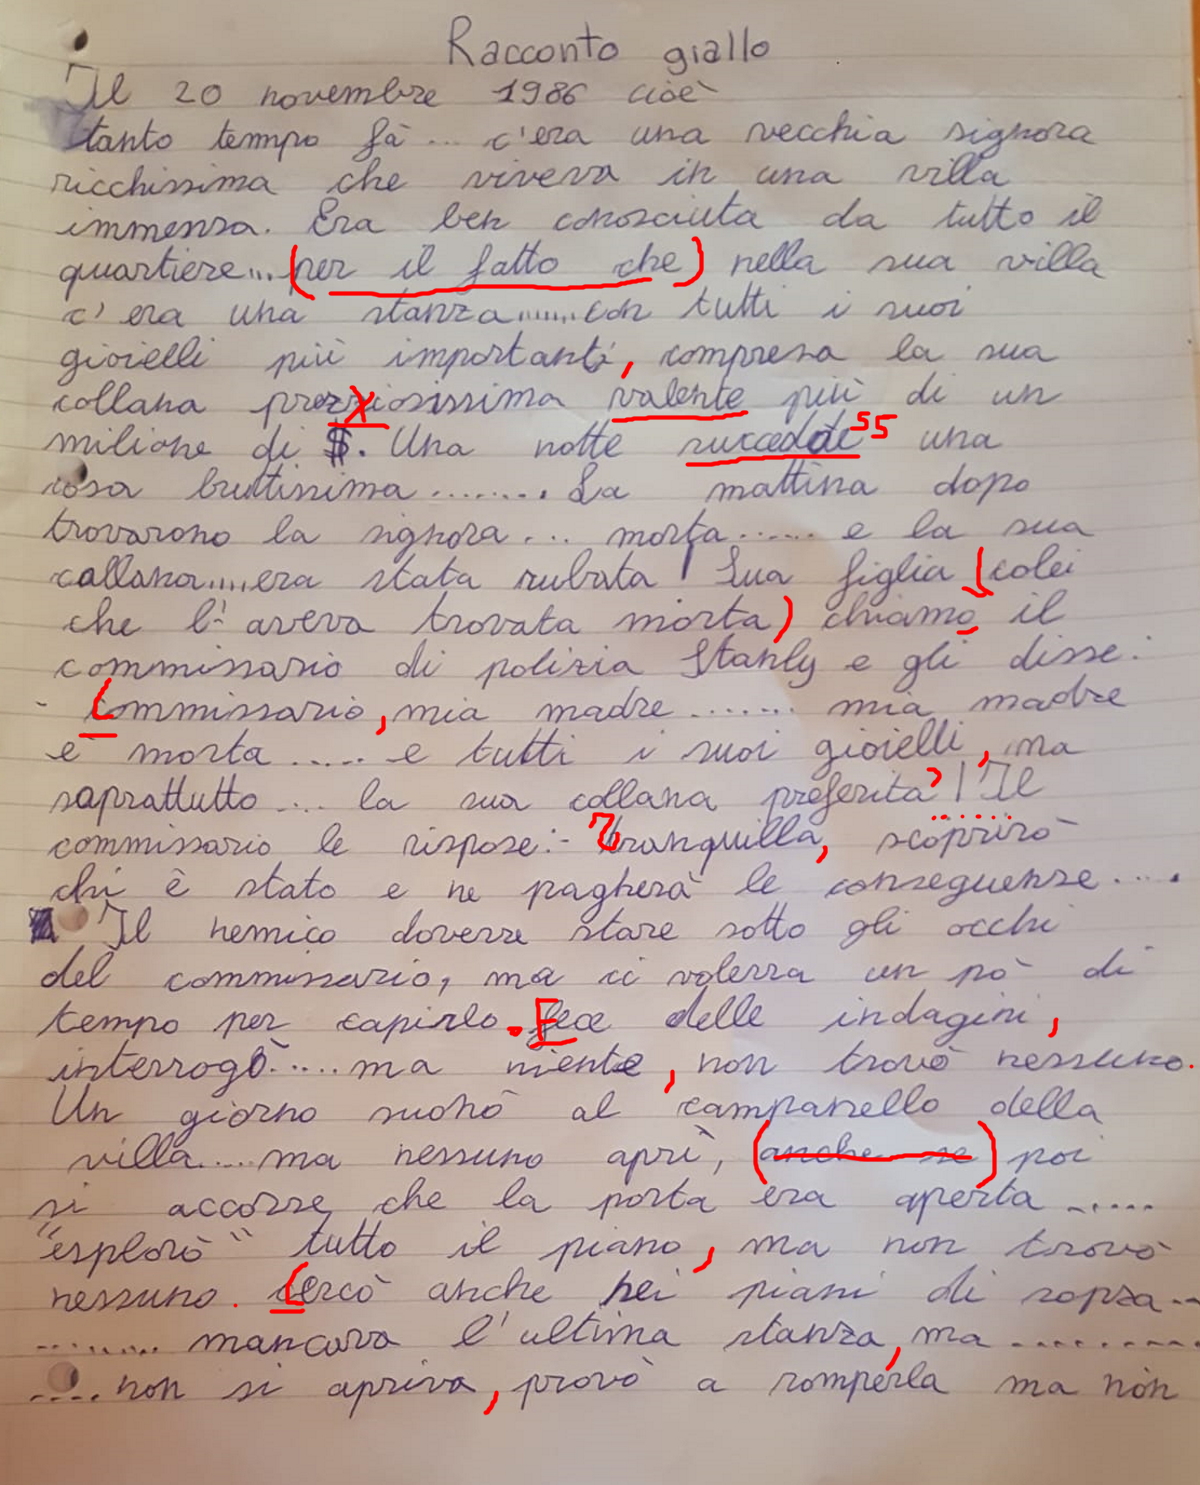 Racconto giallo
Il 20 novembre 1986 cioè
tanto tempo fà ... c'era una vecchia signora
ricchissima che viveva in una villa
immensa. Era ben conosciuta da tutto il
quartiere... (per il fatto che) nella sua villa
c'era una stanza.......con tutti i suoi
gioielli più importanti, compresa la sua
collana prezziosissima valente più di un
milione di $. Una notte succedde ss una
cosa bruttissima ......... La mattina dopo
trovarono la signora ... morta ...... e la sua
collana.....era stata rubata! Sua figlia (colei
che l'aveva trovata morta) chiamò il
commissario di polizia Stanly e gli disse:
- Commissario, mia madre ....... mia madre
è morta ..... e tutti i suoi gioielli, ma
soprattutto .... la sua collana preferita? ! Il
commissario le rispose:- Tranquilla, scoprirò
chi è stato e ne pagherà le conseguenze.....
Il nemico doveva stare sotto gli occhi
del commissario, ma ci voleva un pò di
tempo per capirlo. Fece delle indagini,
interrogò......ma niente, non trovò nessuno.
Un giorno suonò al campanello della
villa.....ma nessuno aprì, (anche se) poi
si accorse che la porta era aperta ......
"esplorò" tutto il piano, ma non trovò
nessuno. Cercò anche nei piani di sopra...
......... mancava l'ultima stanza, ma ..........
.....non si apriva, provò a romperla ma non